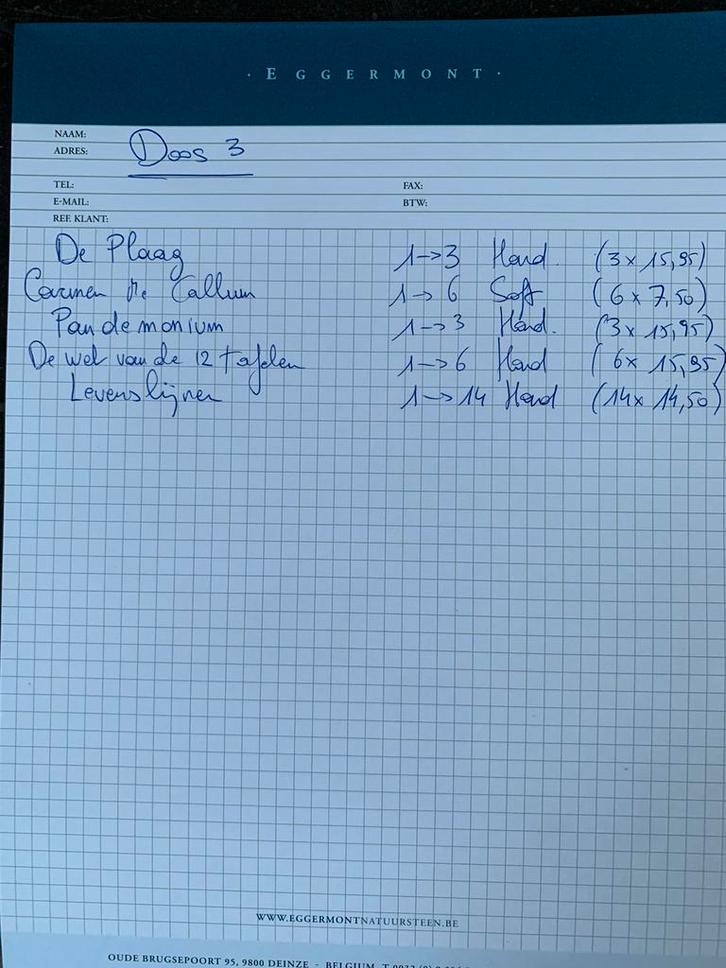 · EGGERMONT ·
NAAM:
ADRES: Doos 3
TEL: FAX:
E-MAIL: BTW:
REF. KLANT:
De Plaag 1->3 Hard. (3x 15,95)
Carmen Mc Callum 1->6 Soft (6x 7,50)
Pandemonium 1->3 Hard. (3x 15,95)
De wet van de 12 tafelen 1->6 Hard (6x 15,95)
Levenslijnen 1->14 Hard (14x 14,50)
WWW.EGGERMONTNATUURSTEEN.BE
OUDE BRUGSEPOORT 95, 9800 DEINZE - BELGIUM, T 0032 (0)